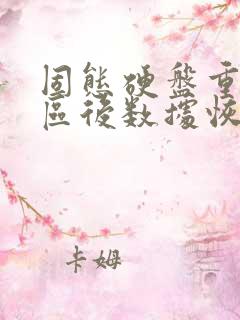 固態硬盤重
區後数據恢
卡姆